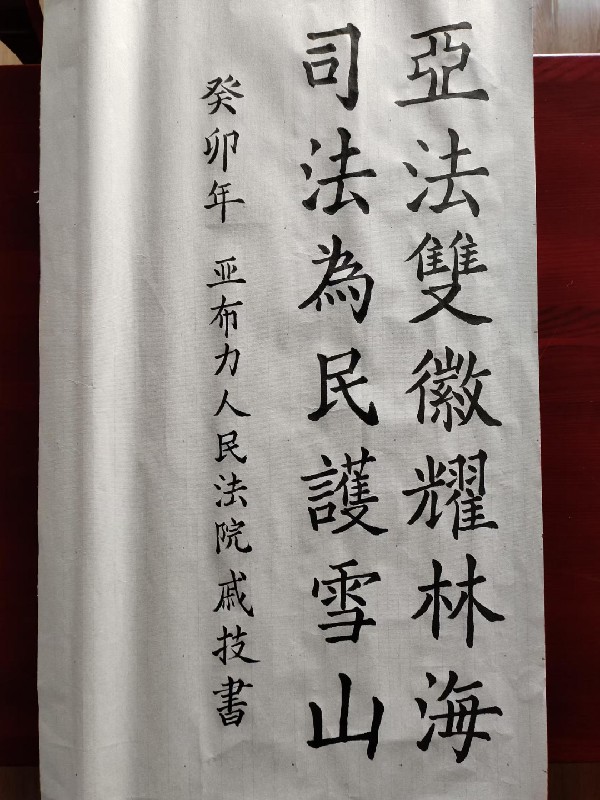 亞法雙徽耀林海
司法為民護雪山
癸卯年 亚布力人民法院戚技書